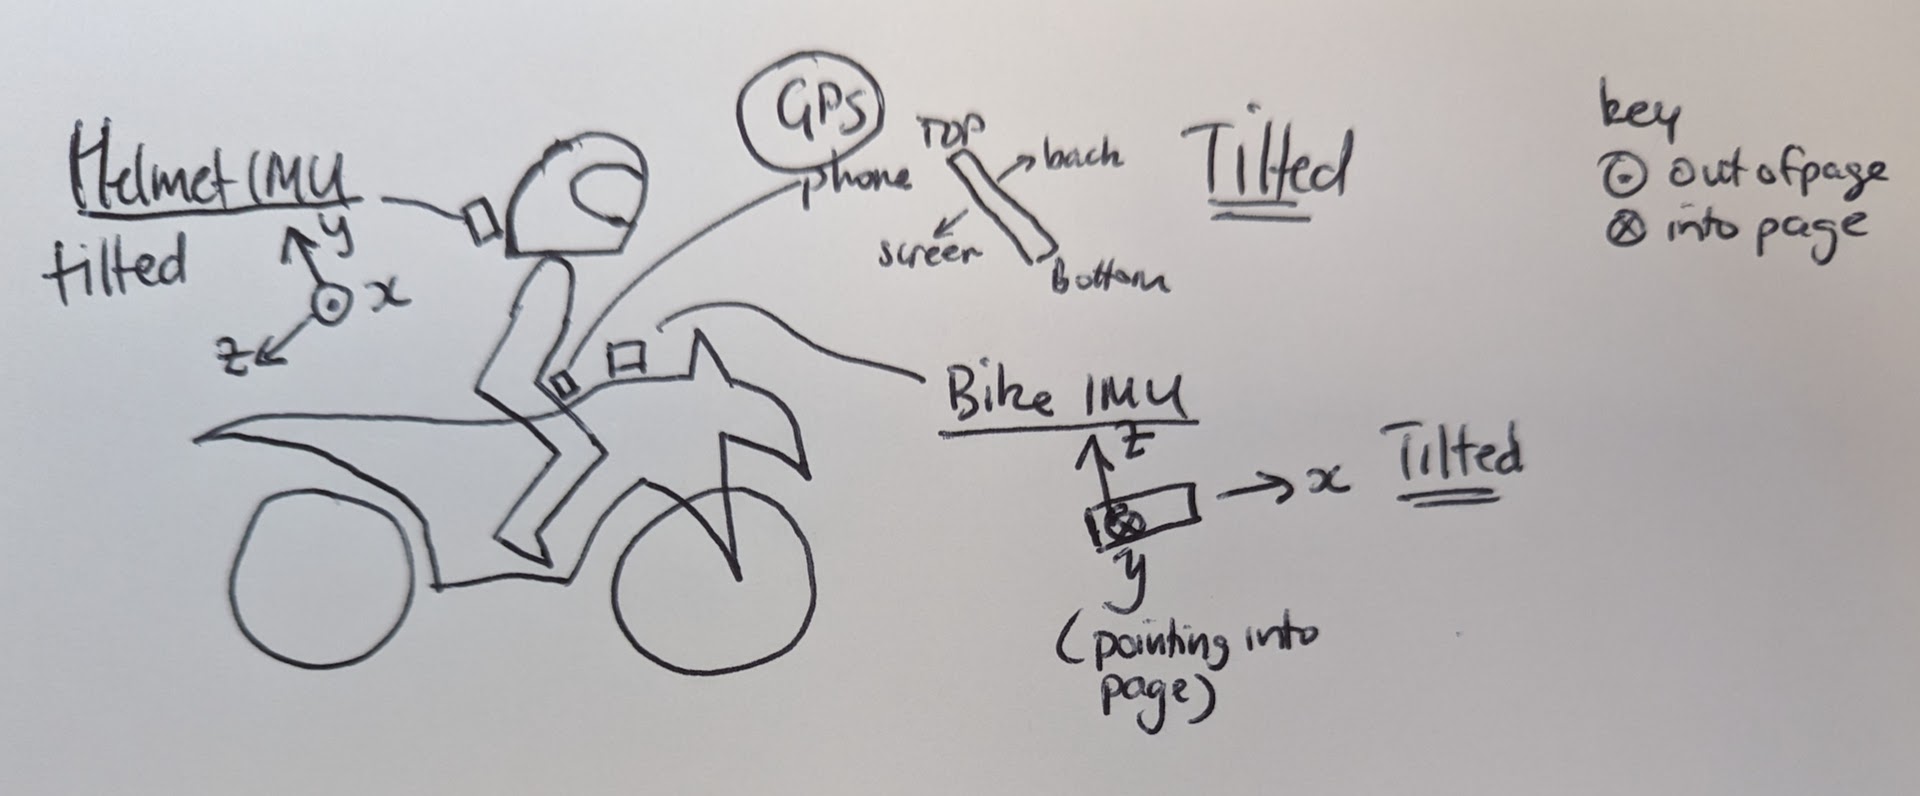 Helmet IMU
tilted
y
x
z
GPS
phone
TOP
back
screen
Bottom
Tilted
key
out of page
into page
Bike IMU
z
x
Tilted
y
(pointing into
page)